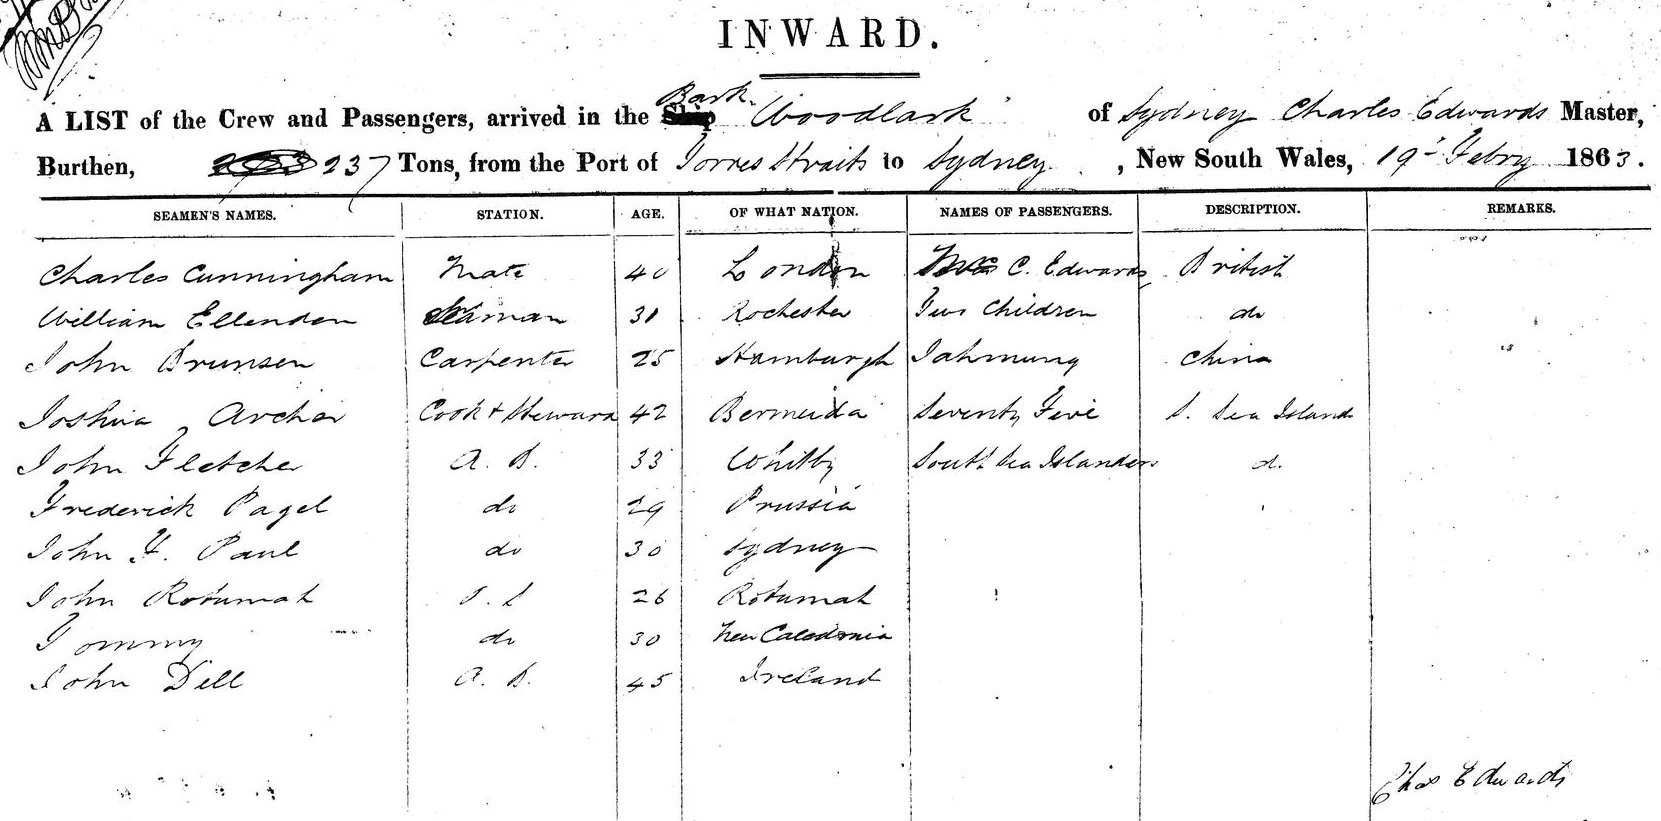 INWARD.
A LIST of the Crew and Passengers, arrived in the Bark Woodlark of Sydney Charles Edwards Master,
Burthen, 237 Tons, from the Port of Torres Straits to Sydney, New South Wales, 19th Febry 1863.
SEAMEN'S NAMES. STATION. AGE. OF WHAT NATION. NAMES OF PASSENGERS. DESCRIPTION. REMARKS.
Charles Cunningham Mate 40 London Mrs C. Edwards British
William Ellenden Seaman 31 Rochester Two Children do
John Brunsen Carpenter 25 Hamburgh China
Joshua Archer Cook & Steward 42 Bermuda Seventy Five S. Sea Island
John Fletcher A. B. 33 Whitby South Sea Islanders d.
Frederick Pagel do 29 Prussia
John F. Paul do 30 Sydney
John Rotumah 26 Rotumah
Tommy do 30 New Caledonia
John Dill A. B. 45 Ireland
Chas Edwards